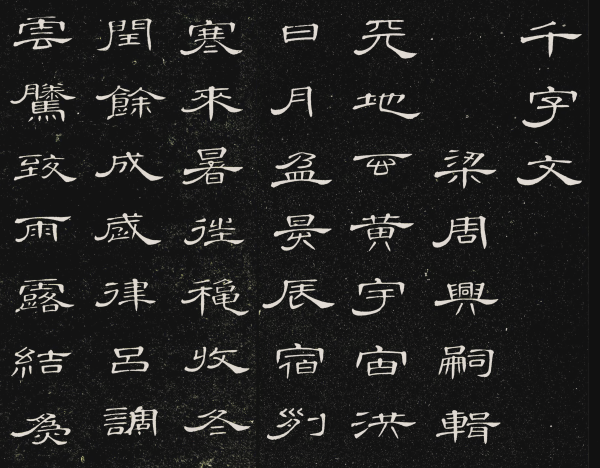 千字文
梁周興嗣輯
天地玄黃宇宙洪
日月盈昃辰宿列
寒來暑往穐收冬
閏餘成歲律呂調
雲騰致雨露結爲